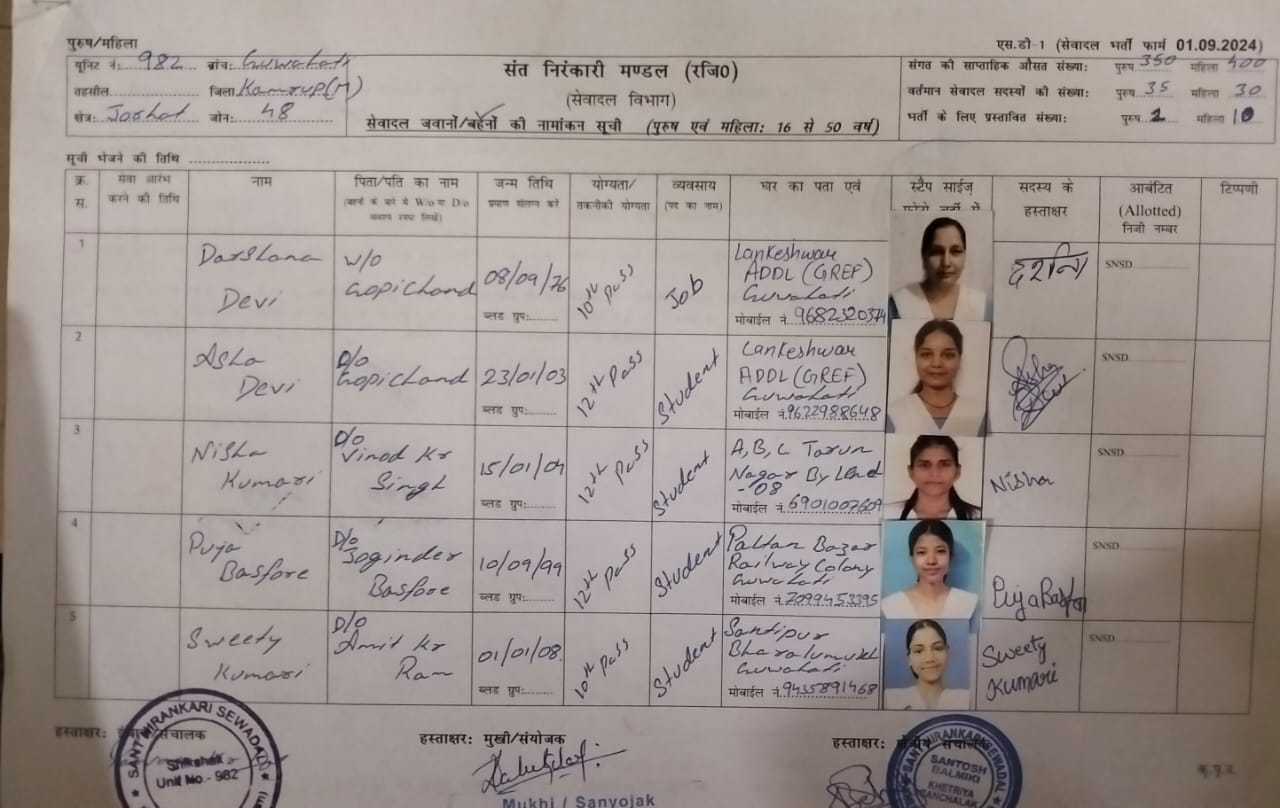 पुरुष/महिला
एस.डी-1 (सेवादल भर्ती फार्म 01.09.2024)
यूनिट नं: 982 ब्रांच: Guwahati
तहसील जिला Kamrup(M)
क्षेत्र: Jorhat जोन: 48
संत निरंकारी मण्डल (रजि0)
(सेवादल विभाग)
सेवादल जवानों/बहनों की नामांकन सूची (पुरुष एवं महिला: 16 से 50 वर्ष)
संगत की साप्ताहिक औसत संख्या: पुरुष 350 महिला 400
वर्तमान सेवादल सदस्यों की संख्या: पुरुष 35 महिला 30
भर्ती के लिए प्रस्तावित संख्या: पुरुष महिला 10
सूची भेजने की तिथि
क्र. स. सेवा आरंभ करने की तिथि नाम पिता/पति का नाम जन्म तिथि योग्यता/ तकनीकी योग्यता व्यवसाय (पद का नाम) घर का पता एवं स्टैप साईज़ सदस्य के हस्ताक्षर आबंटित (Allotted) निजी नम्बर टिप्पणी
(बहनों के बारे में W/o या D/o अवश्य स्पष्ट लिखें) प्रमाण संलग्न करें
1 Darshana Devi W/o Gopichand 08/09/76 10th Pass Job Lankeshwar ADDL (GREF) Guwahati दर्शना SNSD
ब्लड ग्रुप: मोबाईल नं. 9682320374
2 Asha Devi D/o Gopichand 23/01/03 12th Pass Student Lankeshwar ADDL (GREF) Guwahati SNSD
ब्लड ग्रुप: मोबाईल नं. 9622988648
3 Nisha Kumari D/o Vinod Kr Singh 15/01/04 12th Pass Student A,B,C Tarun Nagar By Lane -08 Nisha SNSD
ब्लड ग्रुप: मोबाईल नं. 6901007609
4 Puja Basfore D/o Joginder Basfore 10/09/99 12th Pass Student Paltan Bazar Railway Colony Guwahati Puja Basfor SNSD
ब्लड ग्रुप: मोबाईल नं. 7099453395
5 Sweety Kumari D/o Amit Kr Ram 01/01/08 10th Pass Student Santipur Bharalumukh Guwahati Sweety Kumari SNSD
ब्लड ग्रुप: मोबाईल नं. 9435891468
हस्ताक्षर: संचालक
हस्ताक्षर: मुखी/संयोजक
हस्ताक्षर: क्षेत्रीय संचालक
SANT NIRANKARI SEWADAL
Shikshak
Unit No - 982
Mukhi / Sanyojak
SANT NIRANKARI SEWADAL
SANTOSH
BALMIKI
KHETRIYA
SANCHALAK